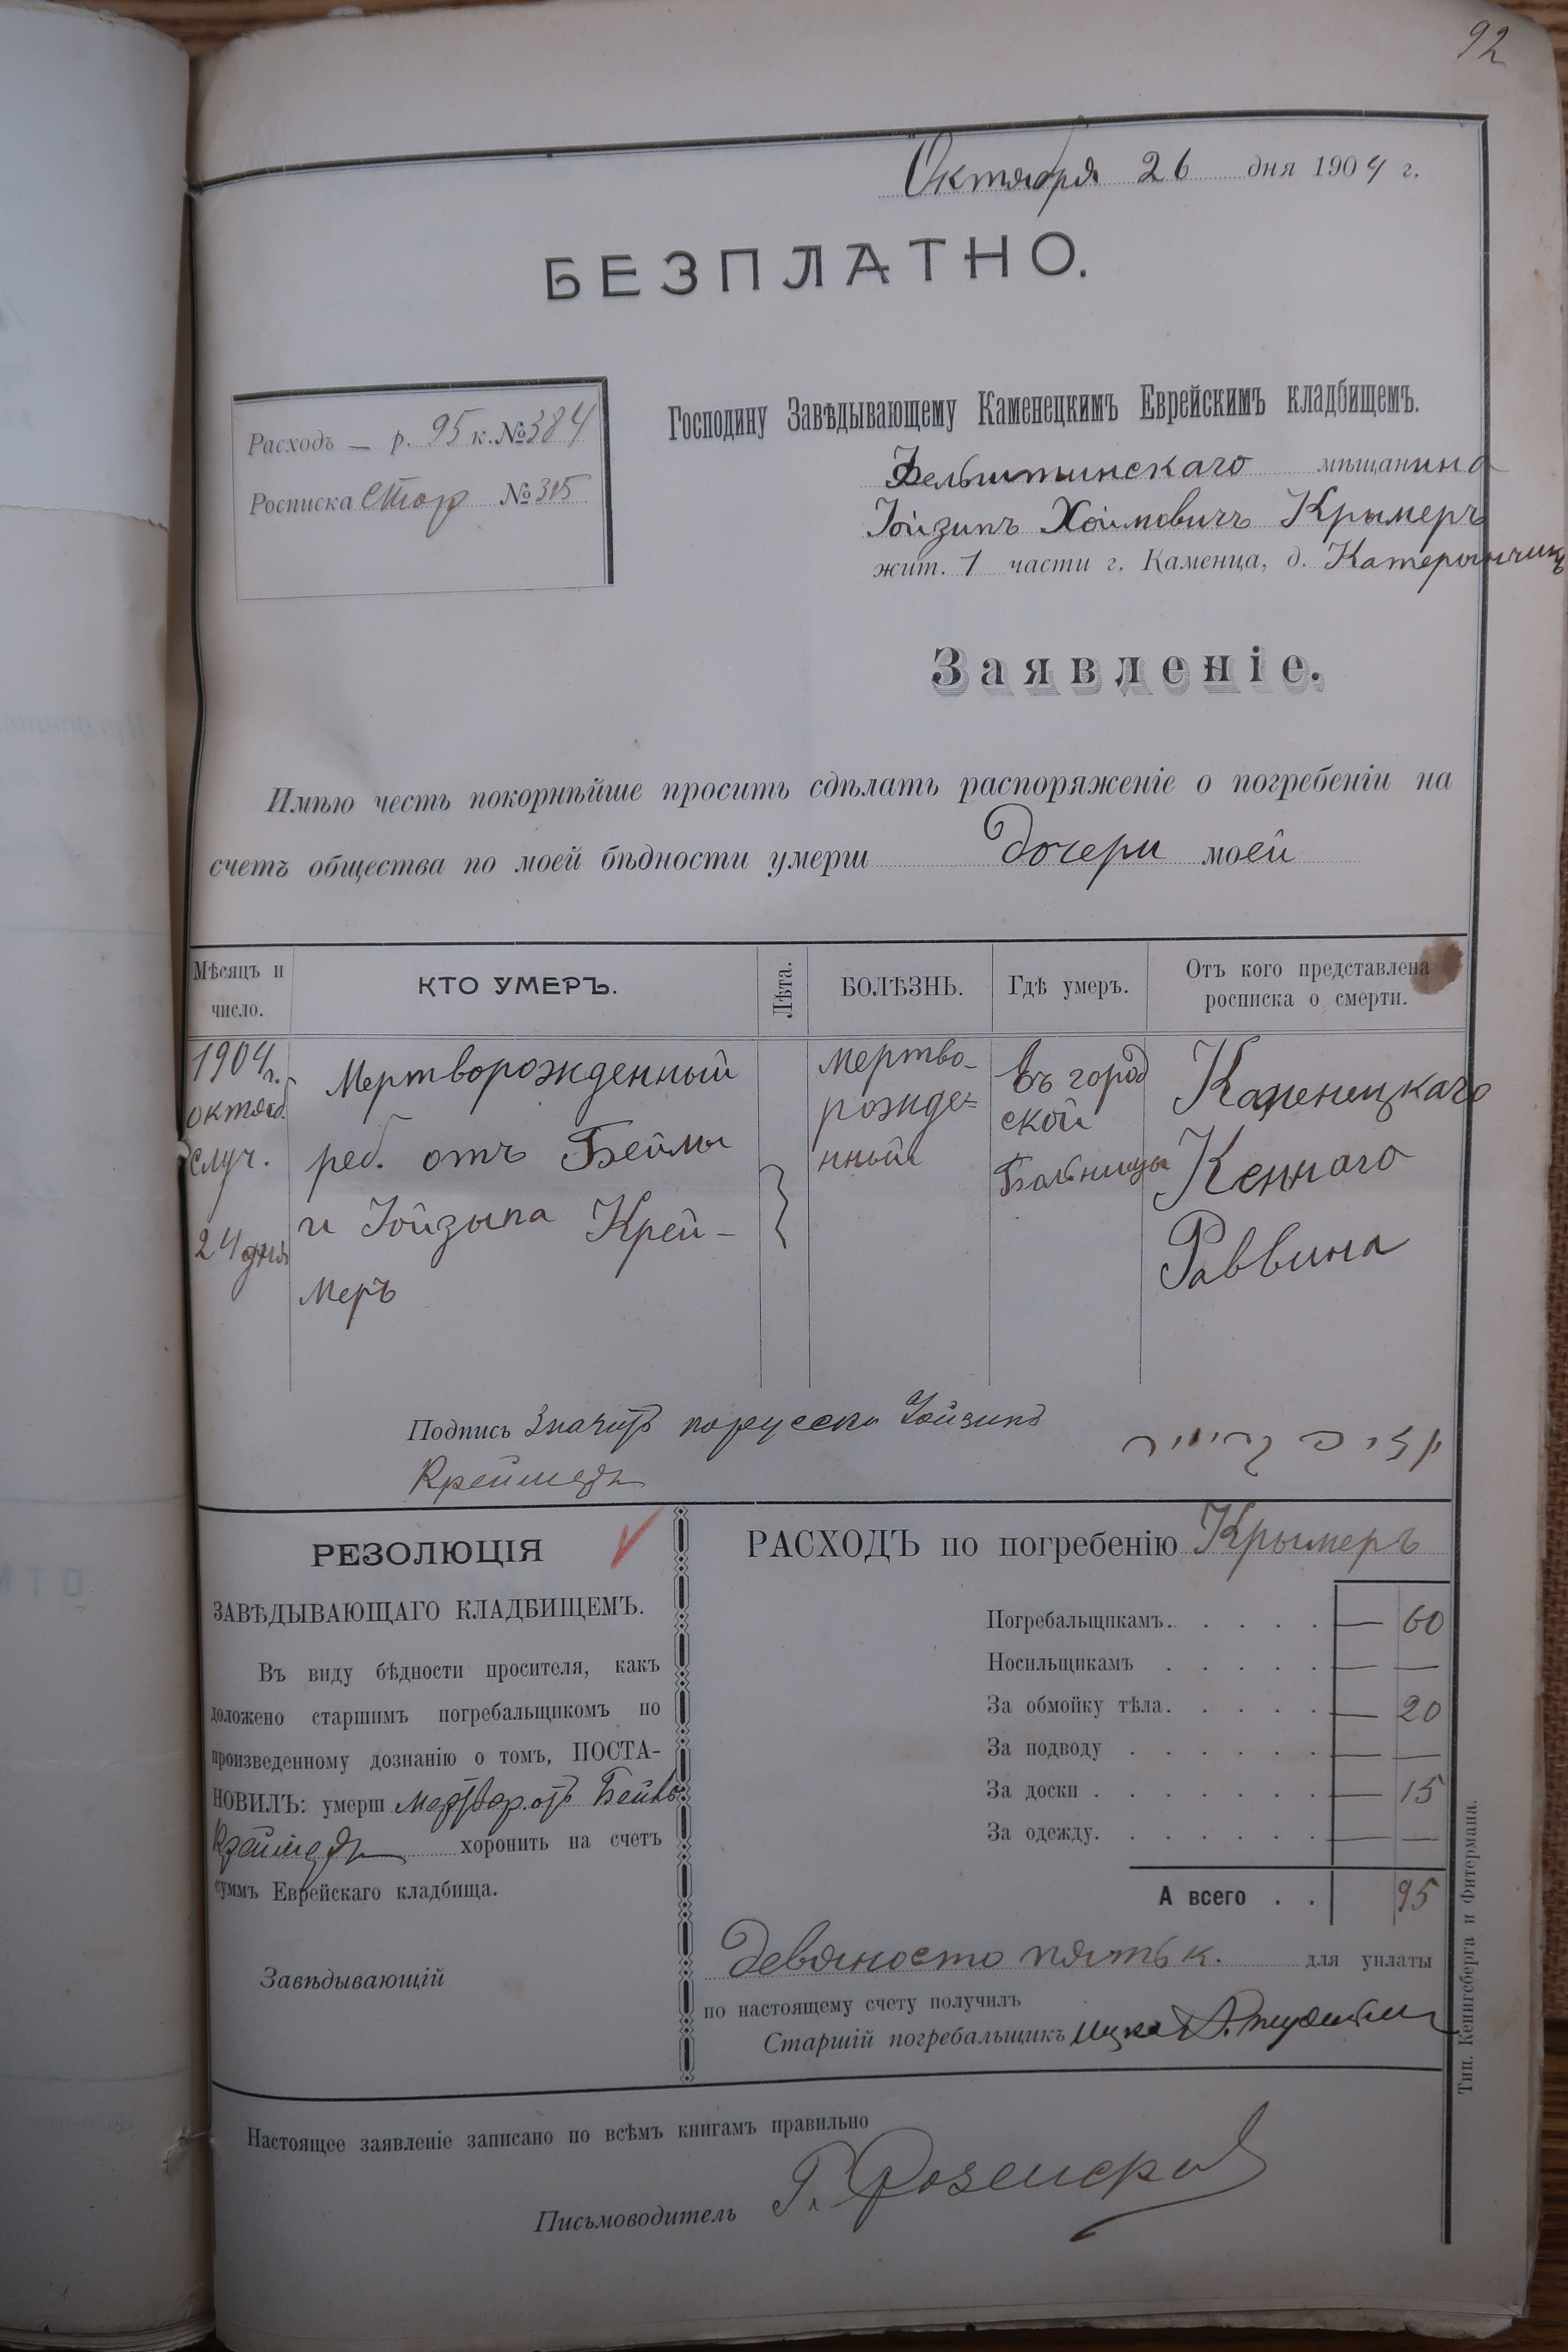 92
Октября 26 дня 1904 г.
БЕЗПЛАТНО.
Расходъ — р. 95 к. № 384
Росписка стор № 315
Господину Завѣдывающему Каменецкимъ Еврейскимъ кладбищемъ.
Фельштинскаго мѣщанина
Іойзипъ Хаимовичъ Крымеръ
жит. 1 части г. Каменца, д. Катерынчикъ
Заявленіе.
Имѣю честь покорнѣйше просить сдѣлать распоряженіе о погребеніи на
счетъ общества по моей бѣдности умерш дочери моей
Мѣсяцъ и число. КТО УМЕРЪ. Лѣта. БОЛѢЗНЬ. Гдѣ умеръ. Отъ кого представлена росписка о смерти.
1904 г. Мертворожденный мертво- въ город Каменецкаго
октяб. рожде= ской
случ. реб. отъ Беймы нный Больницы Кеннаго
24 дня и Іойзыпа Крей- Раввина
меръ
Подпись значитъ порусски Іойзипъ
Креймеръ
РЕЗОЛЮЦІЯ
ЗАВѢДЫВАЮЩАГО КЛАДБИЩЕМЪ.
Въ виду бѣдности просителя, какъ
доложено старшимъ погребальщикомъ по
произведенному дознанію о томъ, ПОСТА-
НОВИЛЪ: умерш мертвор. отъ
Креймеръ хоронить на счетъ
суммъ Еврейскаго кладбища.
Завѣдывающій
РАСХОДЪ по погребенію Крымеръ
Погребальщикамъ. . . . . — 60
Носильщикамъ . . . . . — —
За обмойку тѣла. . . . . — 20
За подводу . . . . . . — —
За доски . . . . . . . — 15
За одежду. . . . . . . — —
А всего . . 95
Девяносто пять к. для уплаты
по настоящему счету получилъ
Старшій погребальщикъ
Тип. Кенигсберга и Фитермана.
Настоящее заявленіе записано по всѣмъ книгамъ правильно
Письмоводитель Г.